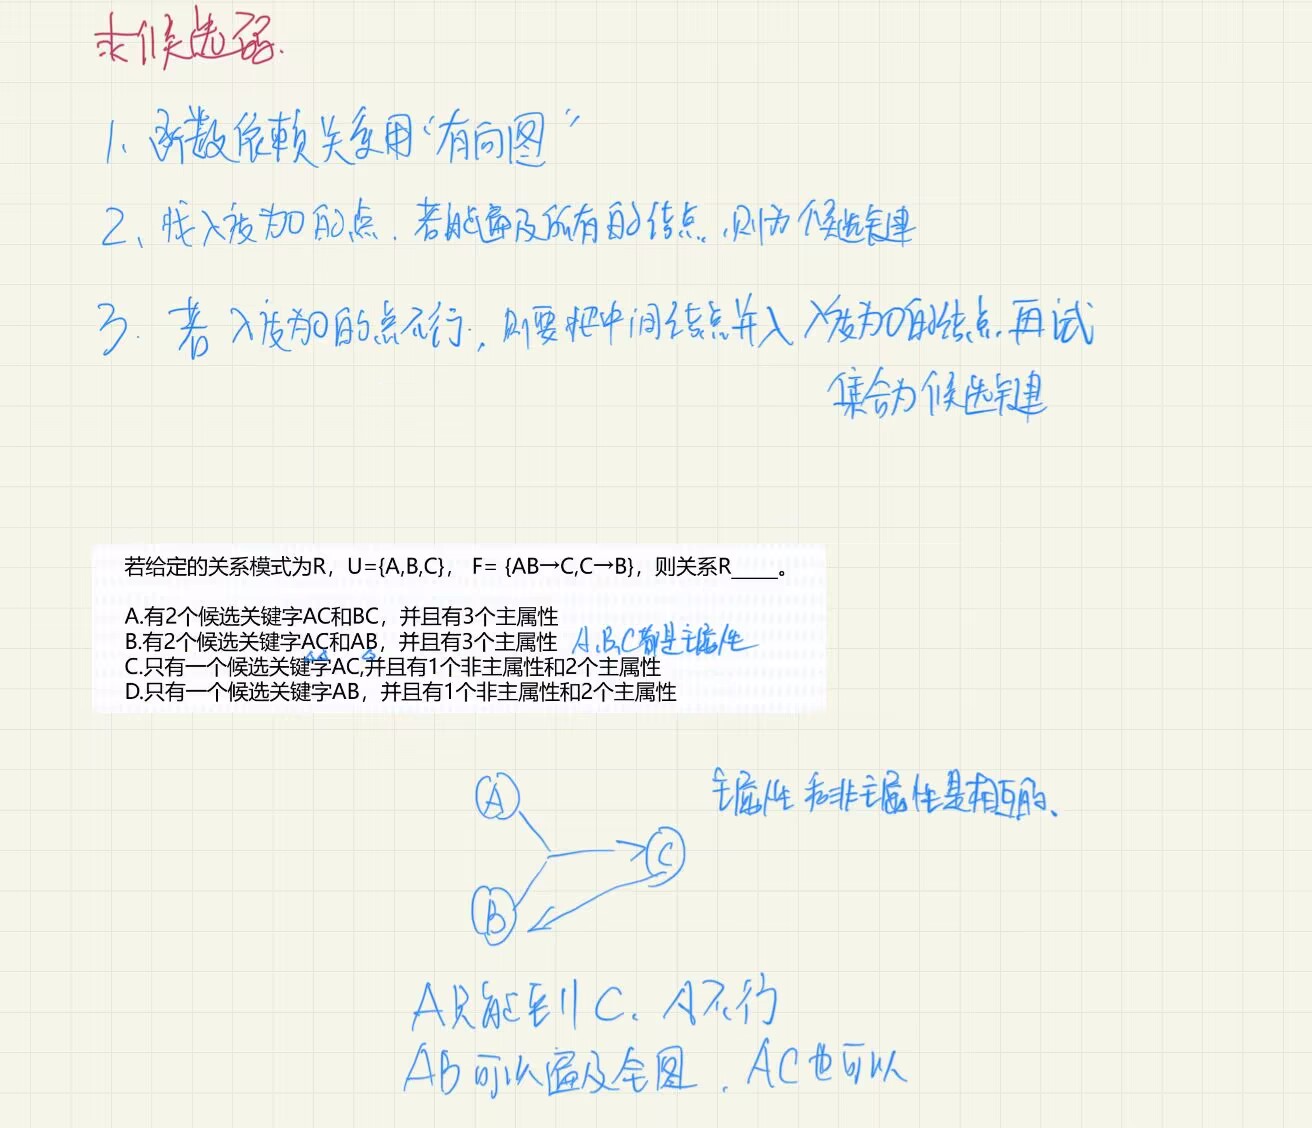 求候选码.
1、函数依赖关系用“有向图”
2、找入度为0的点.若能遍及所有的结点,则为候选关键
3.若入度为0的点不行,则要把中间结点并入入度为0的结点.再试
集合为候选关键
若给定的关系模式为R，U={A,B,C}， F= {AB→C,C→B}，则关系R____。
A.有2个候选关键字AC和BC，并且有3个主属性
B.有2个候选关键字AC和AB，并且有3个主属性 A.B.C都是主属性
C.只有一个候选关键字AC,并且有1个非主属性和2个主属性
D.只有一个候选关键字AB，并且有1个非主属性和2个主属性
主属性和非主属性是相互的、
A
C
B
A只能到C、A不行
AB可以遍及全图.AC也可以